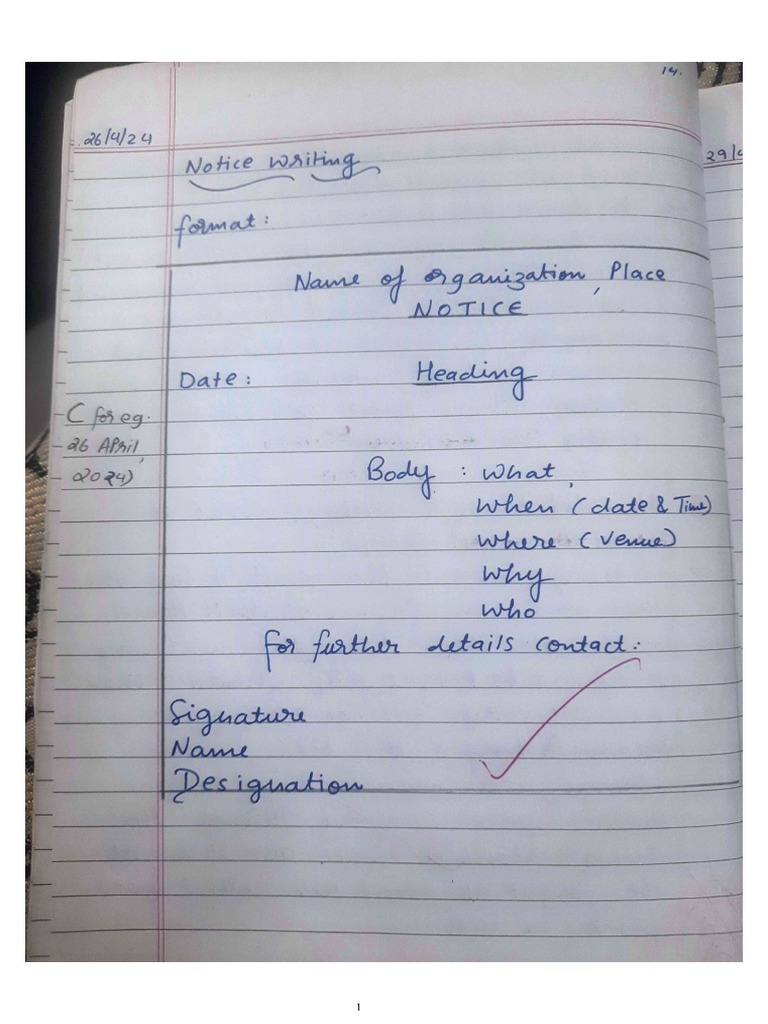 14.
26/4/24
29/4
Notice writing
format:
Name of organization, Place
NOTICE
Date: Heading
( for eg.
26 April,
2024)
Body : what,
when (date & Time)
where (venue)
why
who
for further details contact:
Signature
Name
Designation
1